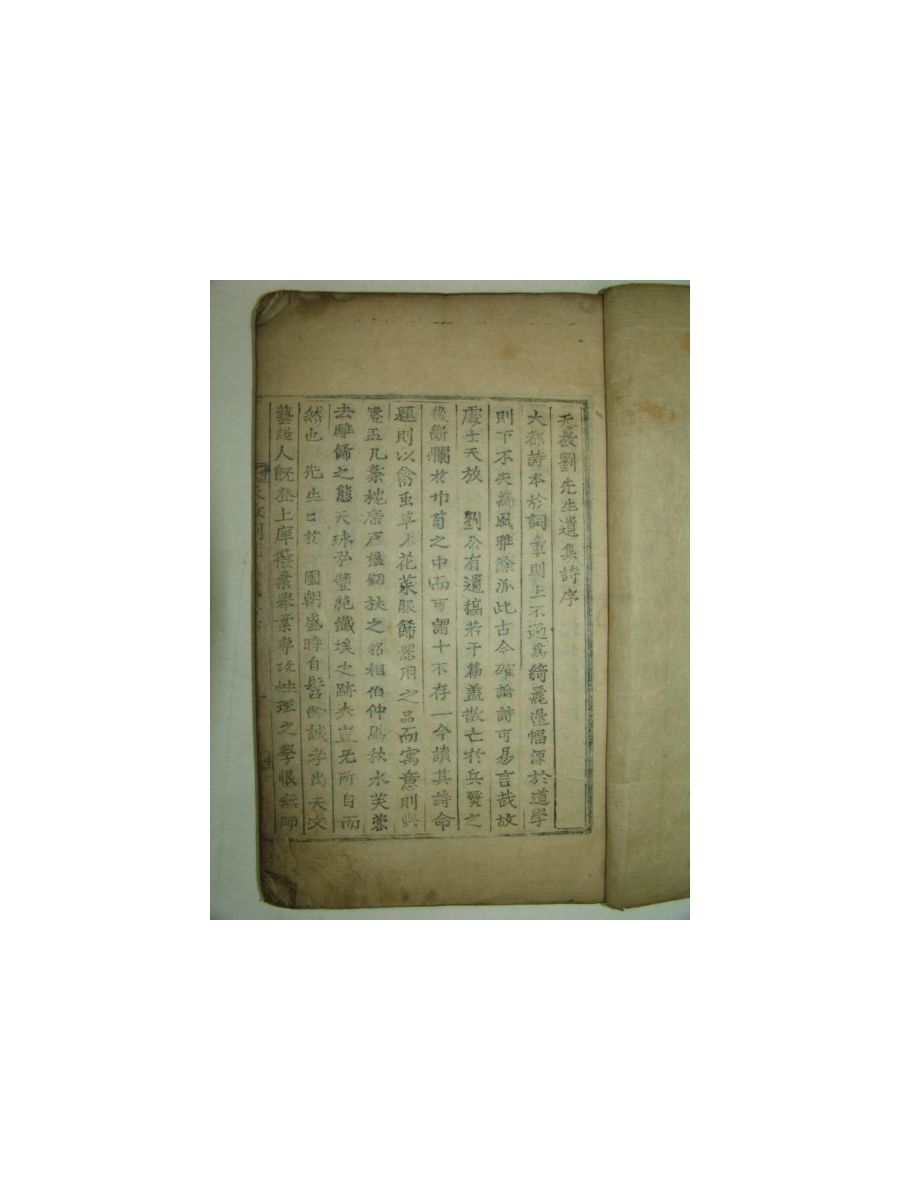 天放劉先生遺集詩序
大都詩本於詞章則上不過爲綺麗邊幅源於道學
則下不失爲風雅餘派此古今確論詩可易言哉故
處士天放 劉公有遺稿若干篇盖散亡於兵燹之
後斷爛於巾笥之中而可謂十不存一今讀其詩命
題則以禽虫草人花菜服餙器用之品而寓意則與
盤盂几 枕席戶楹釼 之銘相伯仲爲秋水芙蓉
去雕餙之態天球弘璧絶纖埃之跡夫豈无所自而
然也 先生曰於 國朝盛時自髫齡誠孝出天文
藝超人旣登上庠撥棄擧業專攻性理之學恨無師